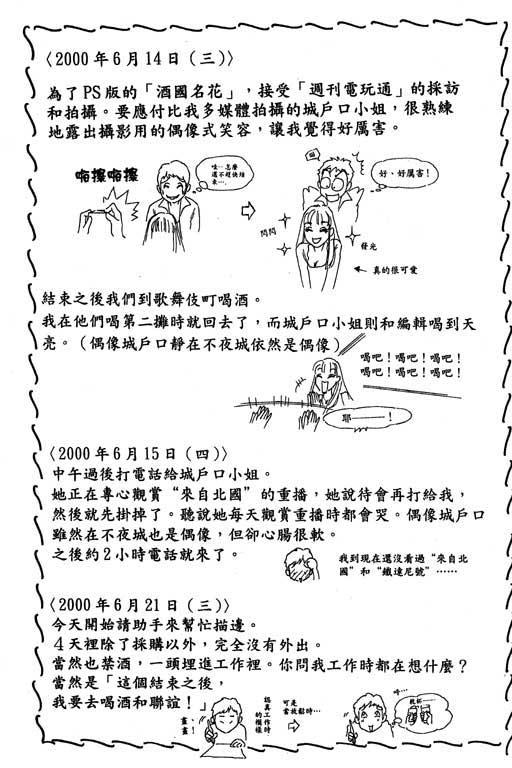 〈2000年6月14日（三）〉
為了PS版的「酒國名花」，接受「週刊電玩通」的採訪
和拍攝。要應付比我多媒體拍攝的城戶口小姐，很熟練
地露出攝影用的偶像式笑容，讓我覺得好厲害。
啪擦啪擦
哇…怎麼
還不趕快結
束…
好、好厲害！
閃閃
發光
真的很可愛
結束之後我們到歌舞伎町喝酒。
我在他們喝第二攤時就回去了，而城戶口小姐則和編輯喝到天
亮。（偶像城戶口靜在不夜城依然是偶像）
喝吧！喝吧！喝吧！
喝吧！喝吧！喝吧！
耶———！
〈2000年6月15日（四）〉
中午過後打電話給城戶口小姐。
她正在專心觀賞“來自北國”的重播，她說待會再打給我，
然後就先掛掉了。聽說她每天觀賞重播時都會哭。偶像城戶口
雖然在不夜城也是偶像，但卻心腸很軟。
之後約2小時電話就來了。
我到現在還沒看過“來自北
國”和“鐵達尼號”……
〈2000年6月21日（三）〉
今天開始請助手來幫忙描邊。
４天裡除了採購以外，完全沒有外出。
當然也禁酒，一頭埋進工作裡。你問我工作時都在想什麼？
當然是「這個結束之後，
我要去喝酒和聯誼！」
畫、
畫！
認真工作時
的模樣
可是
當放鬆時…
乾杯